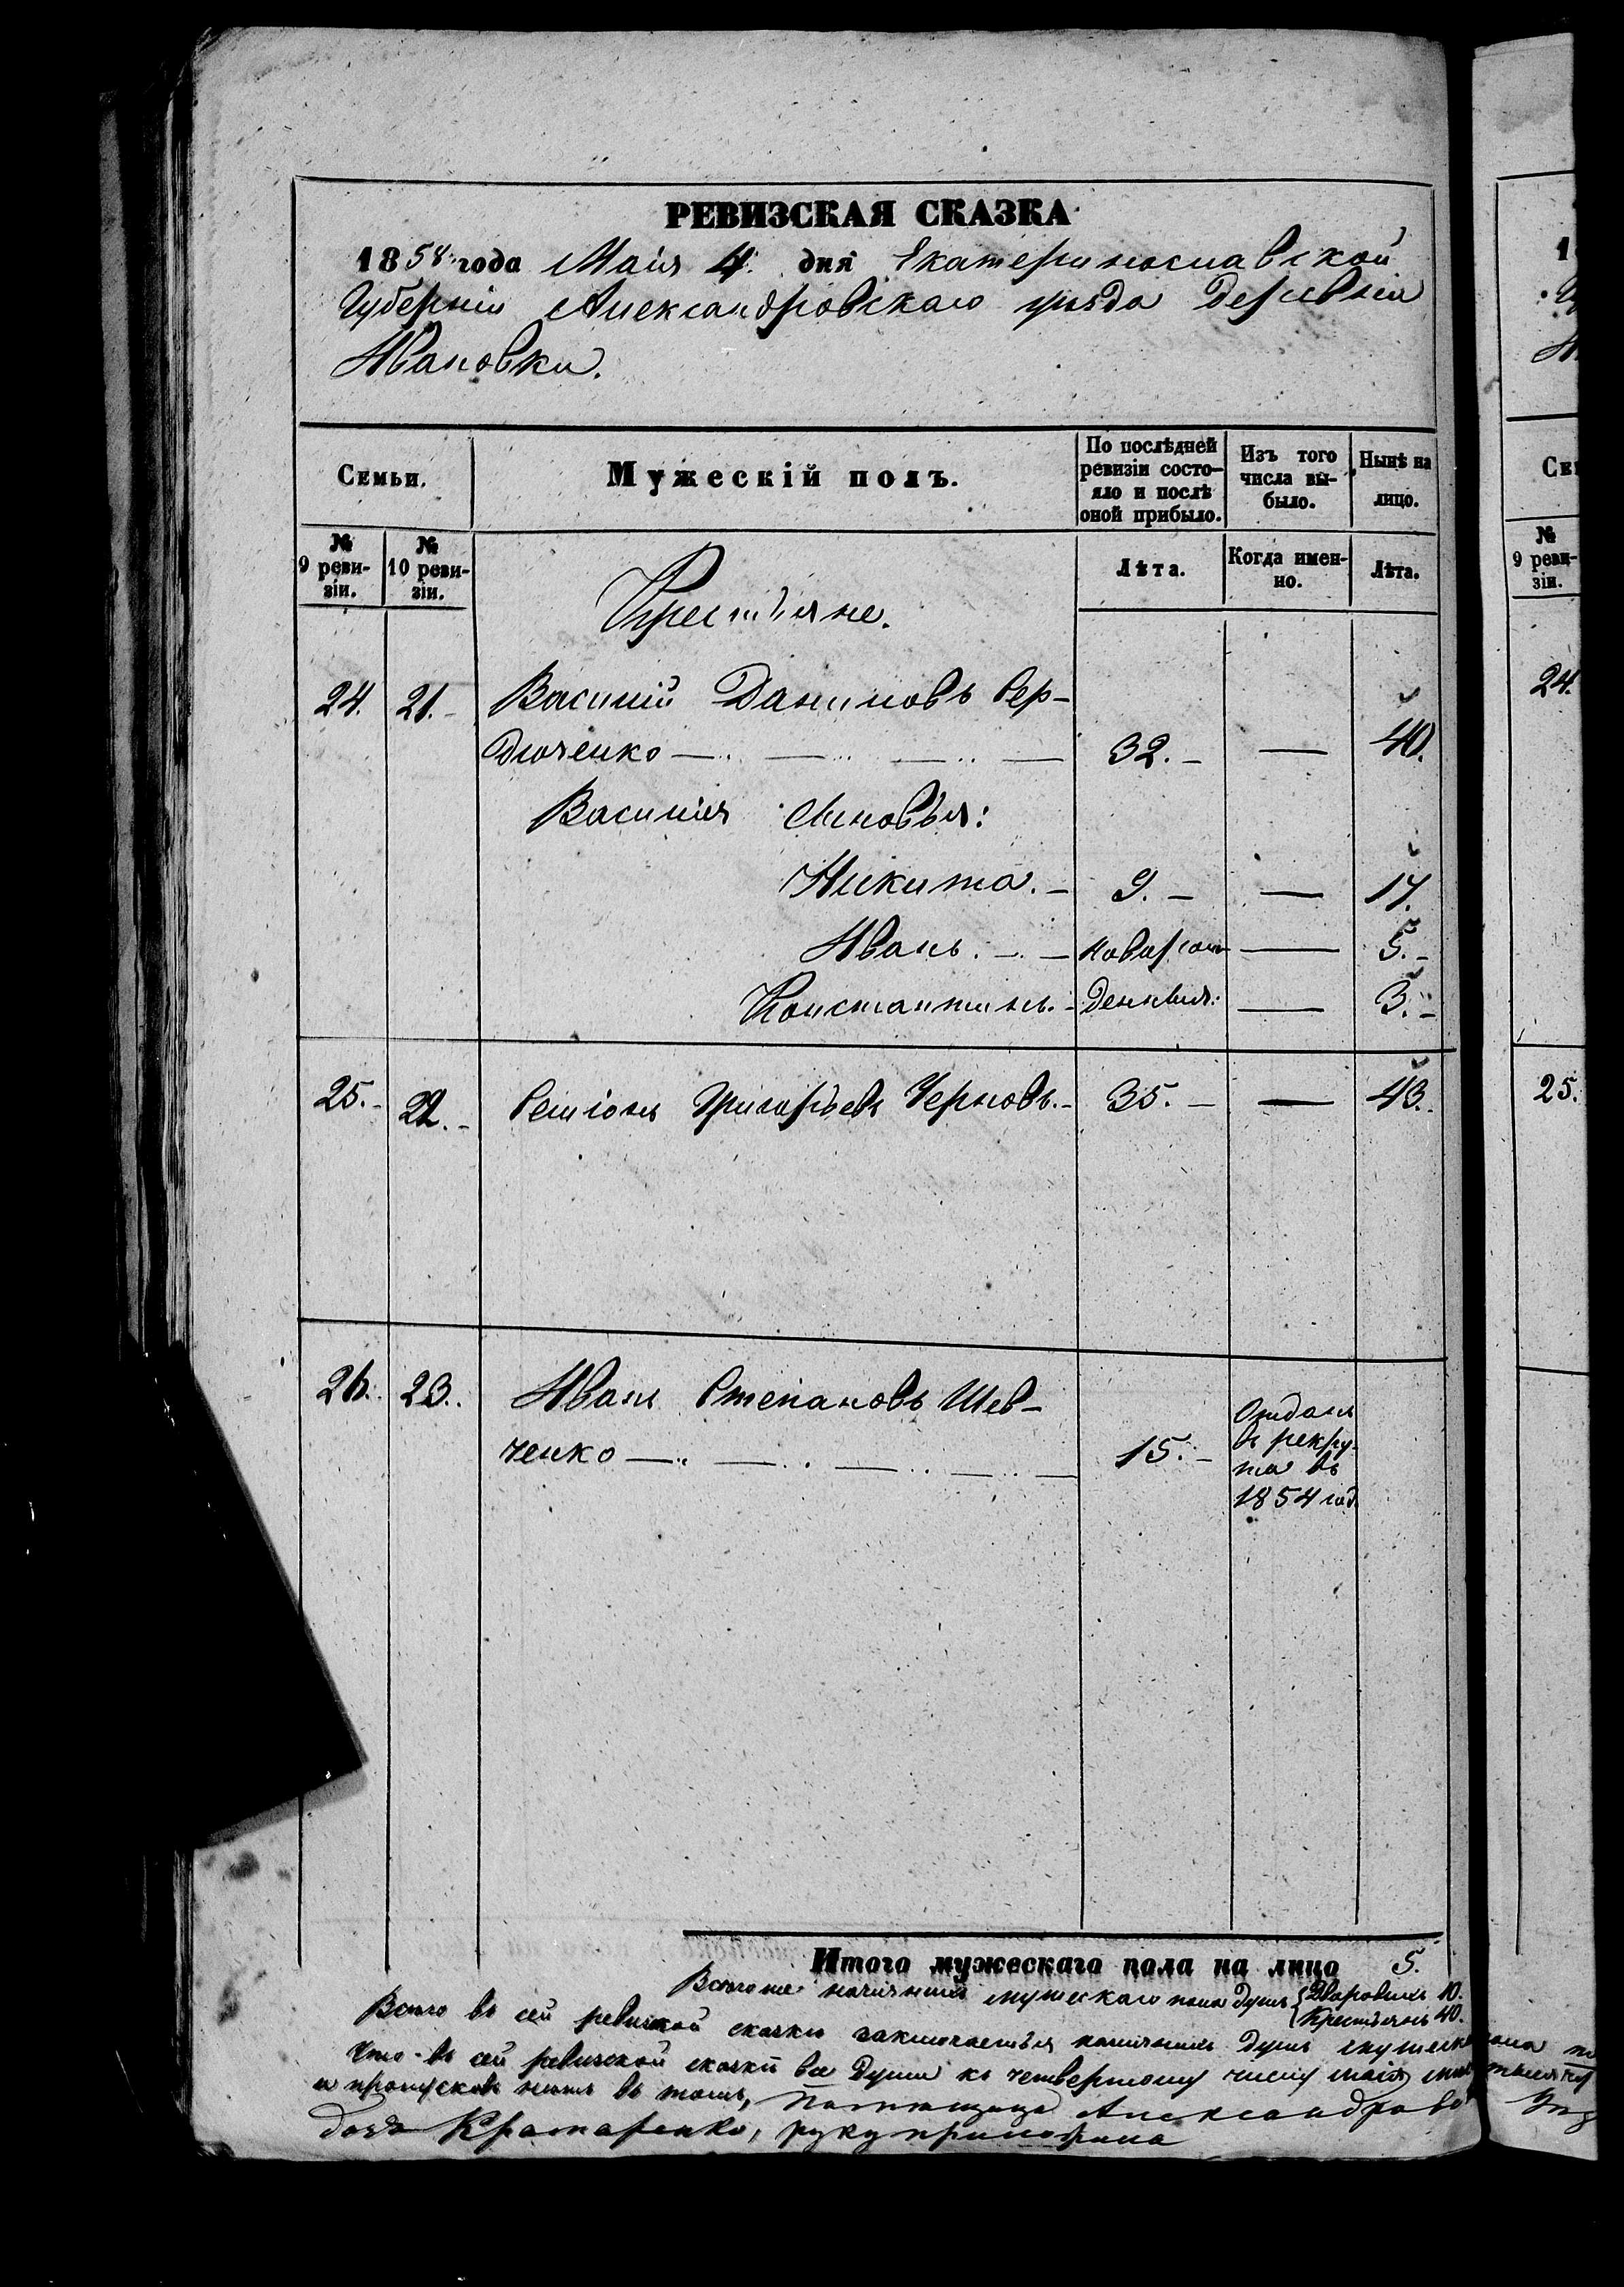 РЕВИЗСКАЯ СКАЗКА
1858 года Маія 4. дня Екатеринославской
Губерніи Александровскаго уѣзда Деревни
Ивановки.
Семьи.
Мужескій полъ.
По послѣдней ревизіи состо-
яло и послѣ оной прибыло.
Изъ того числа вы-
было.
Нынѣ на лицо.
№ 9 реви-
зіи.
№ 10 реви-
зіи.
Лѣта.
Когда имен-
но.
Лѣта.
Крестьяне.
24. 21. Василій Даниловъ Сер-
дюченко 32. 40.
Василія Сыновья:
Никита. 9. 17.
Иванъ. Новорож 5.
Константинъ. денныя: 3.
25. 22. Семіонъ Григорьевъ Черновъ. 35. 43.
26. 23. Иванъ Степановъ Шев-
ченко 15. Отданъ
въ рекру-
та въ
1854 год.
Итого мужескаго пола на лицо 5.
Всего наличныхъ мужескаго пола душъ Дворовыхъ 10.
Крестьянъ 40.
Всего въ сей ревизской сказкѣ заключается наличныхъ душъ
Что въ сей ревизской сказкѣ все души къ четвертому числу маія
и пропусковъ нѣтъ въ томъ, Помѣщица Александра
руку приложила
1
24.
25.
Сем
№ 9 реви-
зіи.